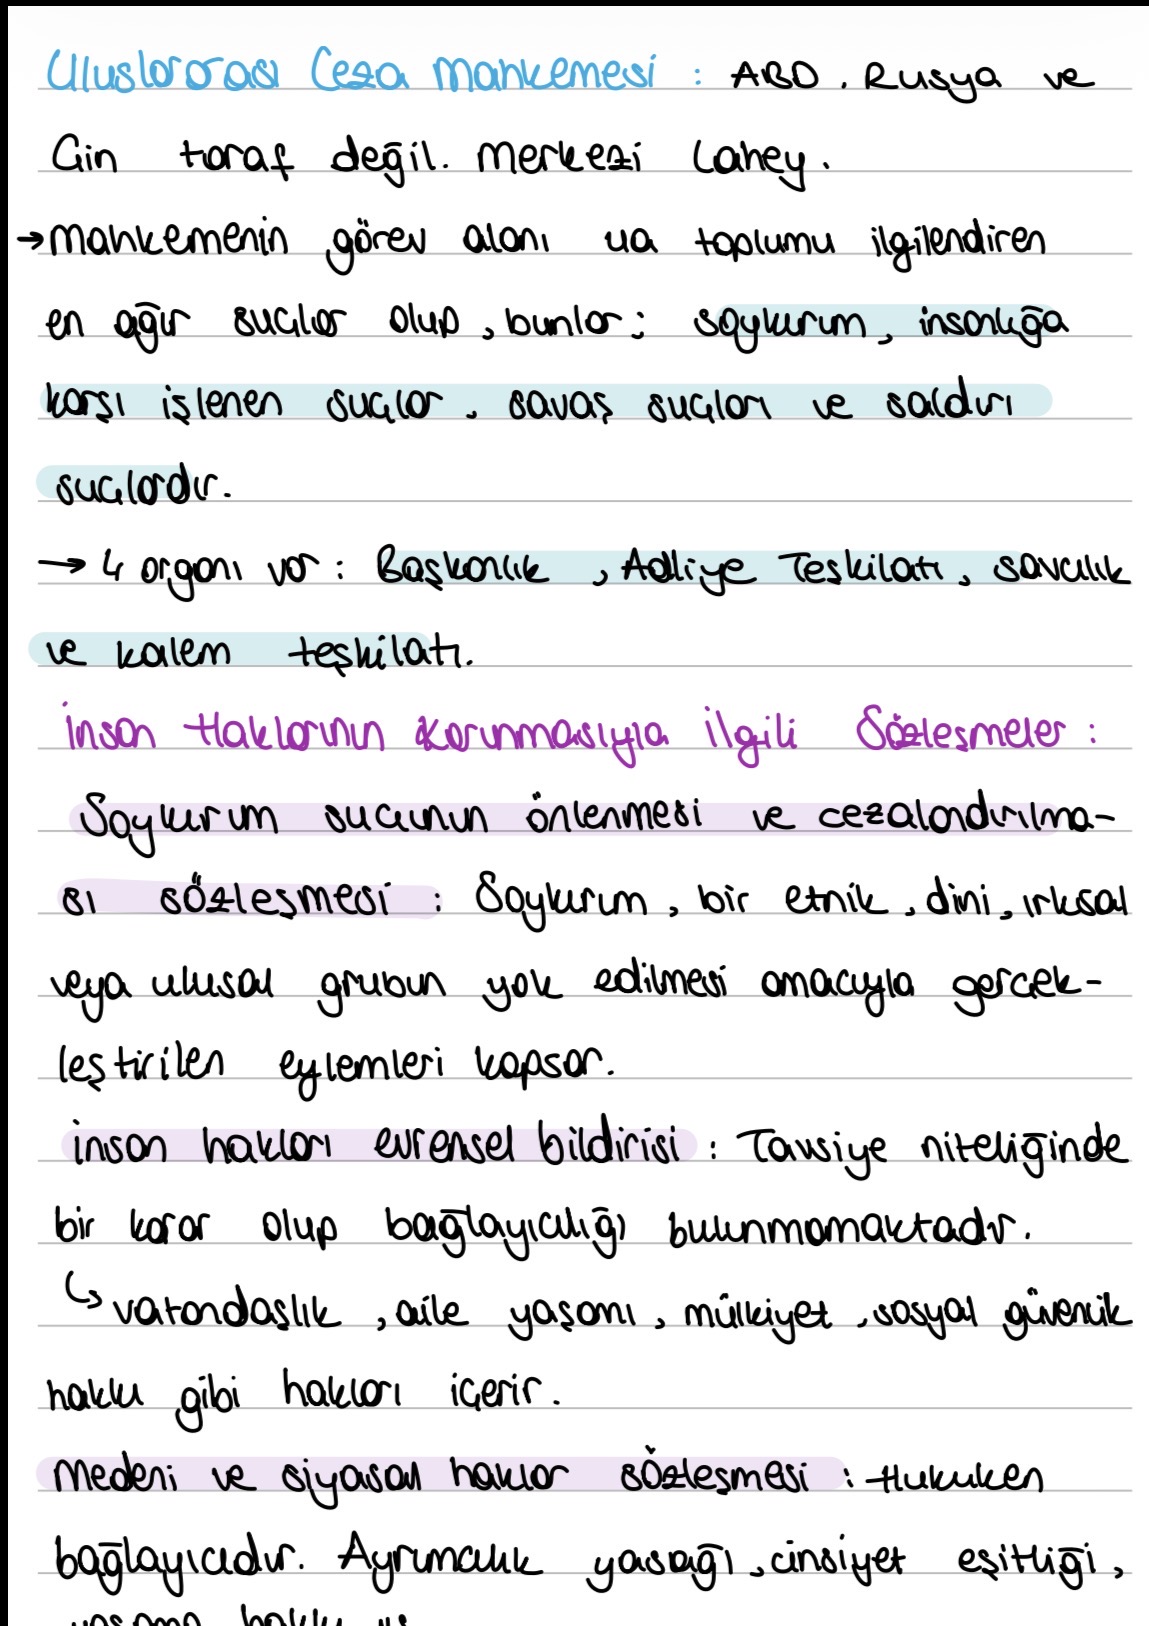 Uluslararası Ceza Mahkemesi : ABD, Rusya ve
Çin taraf değil. Merkezi Lahey.
→ Mahkemenin görev alanı ua toplumu ilgilendiren
en ağır suçlar olup, bunlar; soykırım, insanlığa
karşı işlenen suçlar, savaş suçları ve saldırı
suçlardır.
→ 4 organı var : Başkanlık, Adliye Teşkilatı, savcılık
ve kalem teşkilatı.
İnsan Haklarının Korunmasıyla ilgili Sözleşmeler :
Soykırım suçunun önlenmesi ve cezalandırılma-
sı sözleşmesi : Soykırım, bir etnik, dini, ırksal
veya ulusal grubun yok edilmesi amacıyla gerçek-
leştirilen eylemleri kapsar.
insan hakları evrensel bildirisi : Tavsiye niteliğinde
bir karar olup bağlayıcılığı bulunmamaktadır.
↳ vatandaşlık, aile yaşamı, mülkiyet, sosyal güvenlik
hakkı gibi hakları içerir.
Medeni ve siyasal haklar sözleşmesi : Hukuken
bağlayıcıdır. Ayrımcılık yasağı, cinsiyet eşitliği,
yaşama hakkı